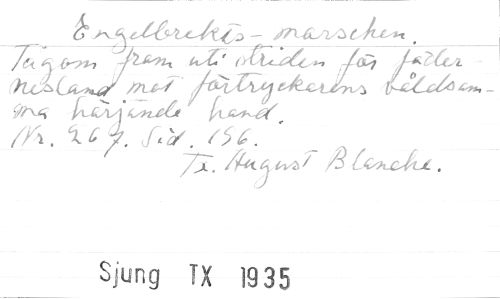 Engelbrekts-marschen.
Tågom fram uti striden för fäder-
nesland mot förtryckarens våldsam-
ma härjande hand.
Nr. 267. Sid. 156.
Tx. August Blanche.
Sjung TX 1935